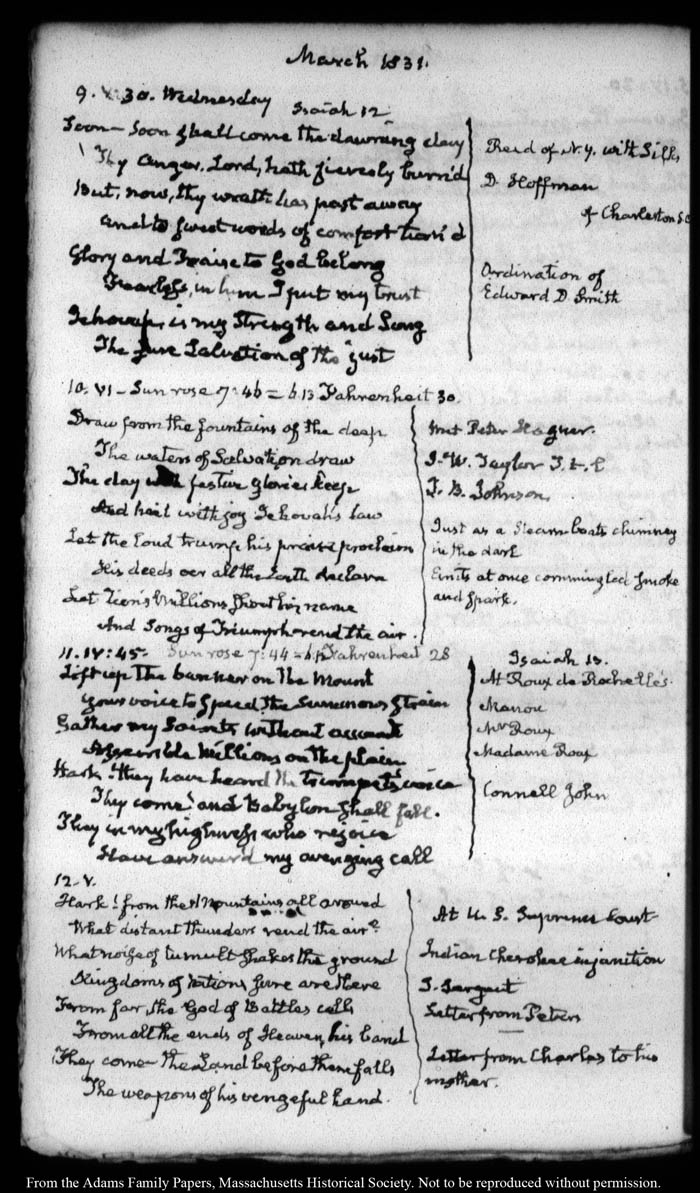 March 1831.
9. V:30. Wednesday
Isaiah 12.
Soon – Soon shall come the dawning day
Thy anger, Lord, hath fiercely burn'd
But, now, thy wrath has past away
And to sweet words of comfort turn'd
Glory and Praise to God belong
Fearless, in him I put my trust
Jehovah, is my Strength and Song
The sure Salvation of the just
Read of N.Y. with Silks
D. Hoffman
of Charleston S C
Ordination of
Edward D. Smith
10. VI – Sun rose 7:46 = 6.13 Fahrenheit 30.
Draw from the fountains of the deep
The waters of Salvation draw
The day with festive glories keep
And hail with joy Jehovah's law
Let the loud trump his praise proclaim
His deeds oer all the Earth declare
Let Zion's Millions shout his name
And Songs of Triumph rend the air.
met Peter Hagner.
J. W. Taylor
J. B. Johnson
Just as a Steam-boats chimney
in the dark
Emits at once commingled Smoke
and Spark.
11. IV:45– Sun rose 7:44 = Fahrenheit 28
Lift up the banner on the Mount
your voice to speed the summons strain
Gather my Saints without account
Assemble Millions on the plain
Hark! they have heard the trumpet's voice
They come! and Babylon shall fall.
They in my highness who rejoice
Have answer'd my avenging call
Isaiah 13.
At Roux de Rochelle's
Manou
Mr Roux
Madame Roux
Connell John
12. V.
Hark! from the Mountains all around
What distant thunders rend the air?
What noise of tumult shakes the ground
Kingdoms of Nations sure are there
From far, the God of Battles calls
From all the ends of Heaven, his band
They come – the Land before them falls
The weapons of his vengeful hand.
At U. S. Supreme Court
Indian Cherokee injunction
J. Sargeant
Letter from Peters
Letter from Charles to his
mother.
From the Adams Family Papers, Massachusetts Historical Society. Not to be reproduced without permission.